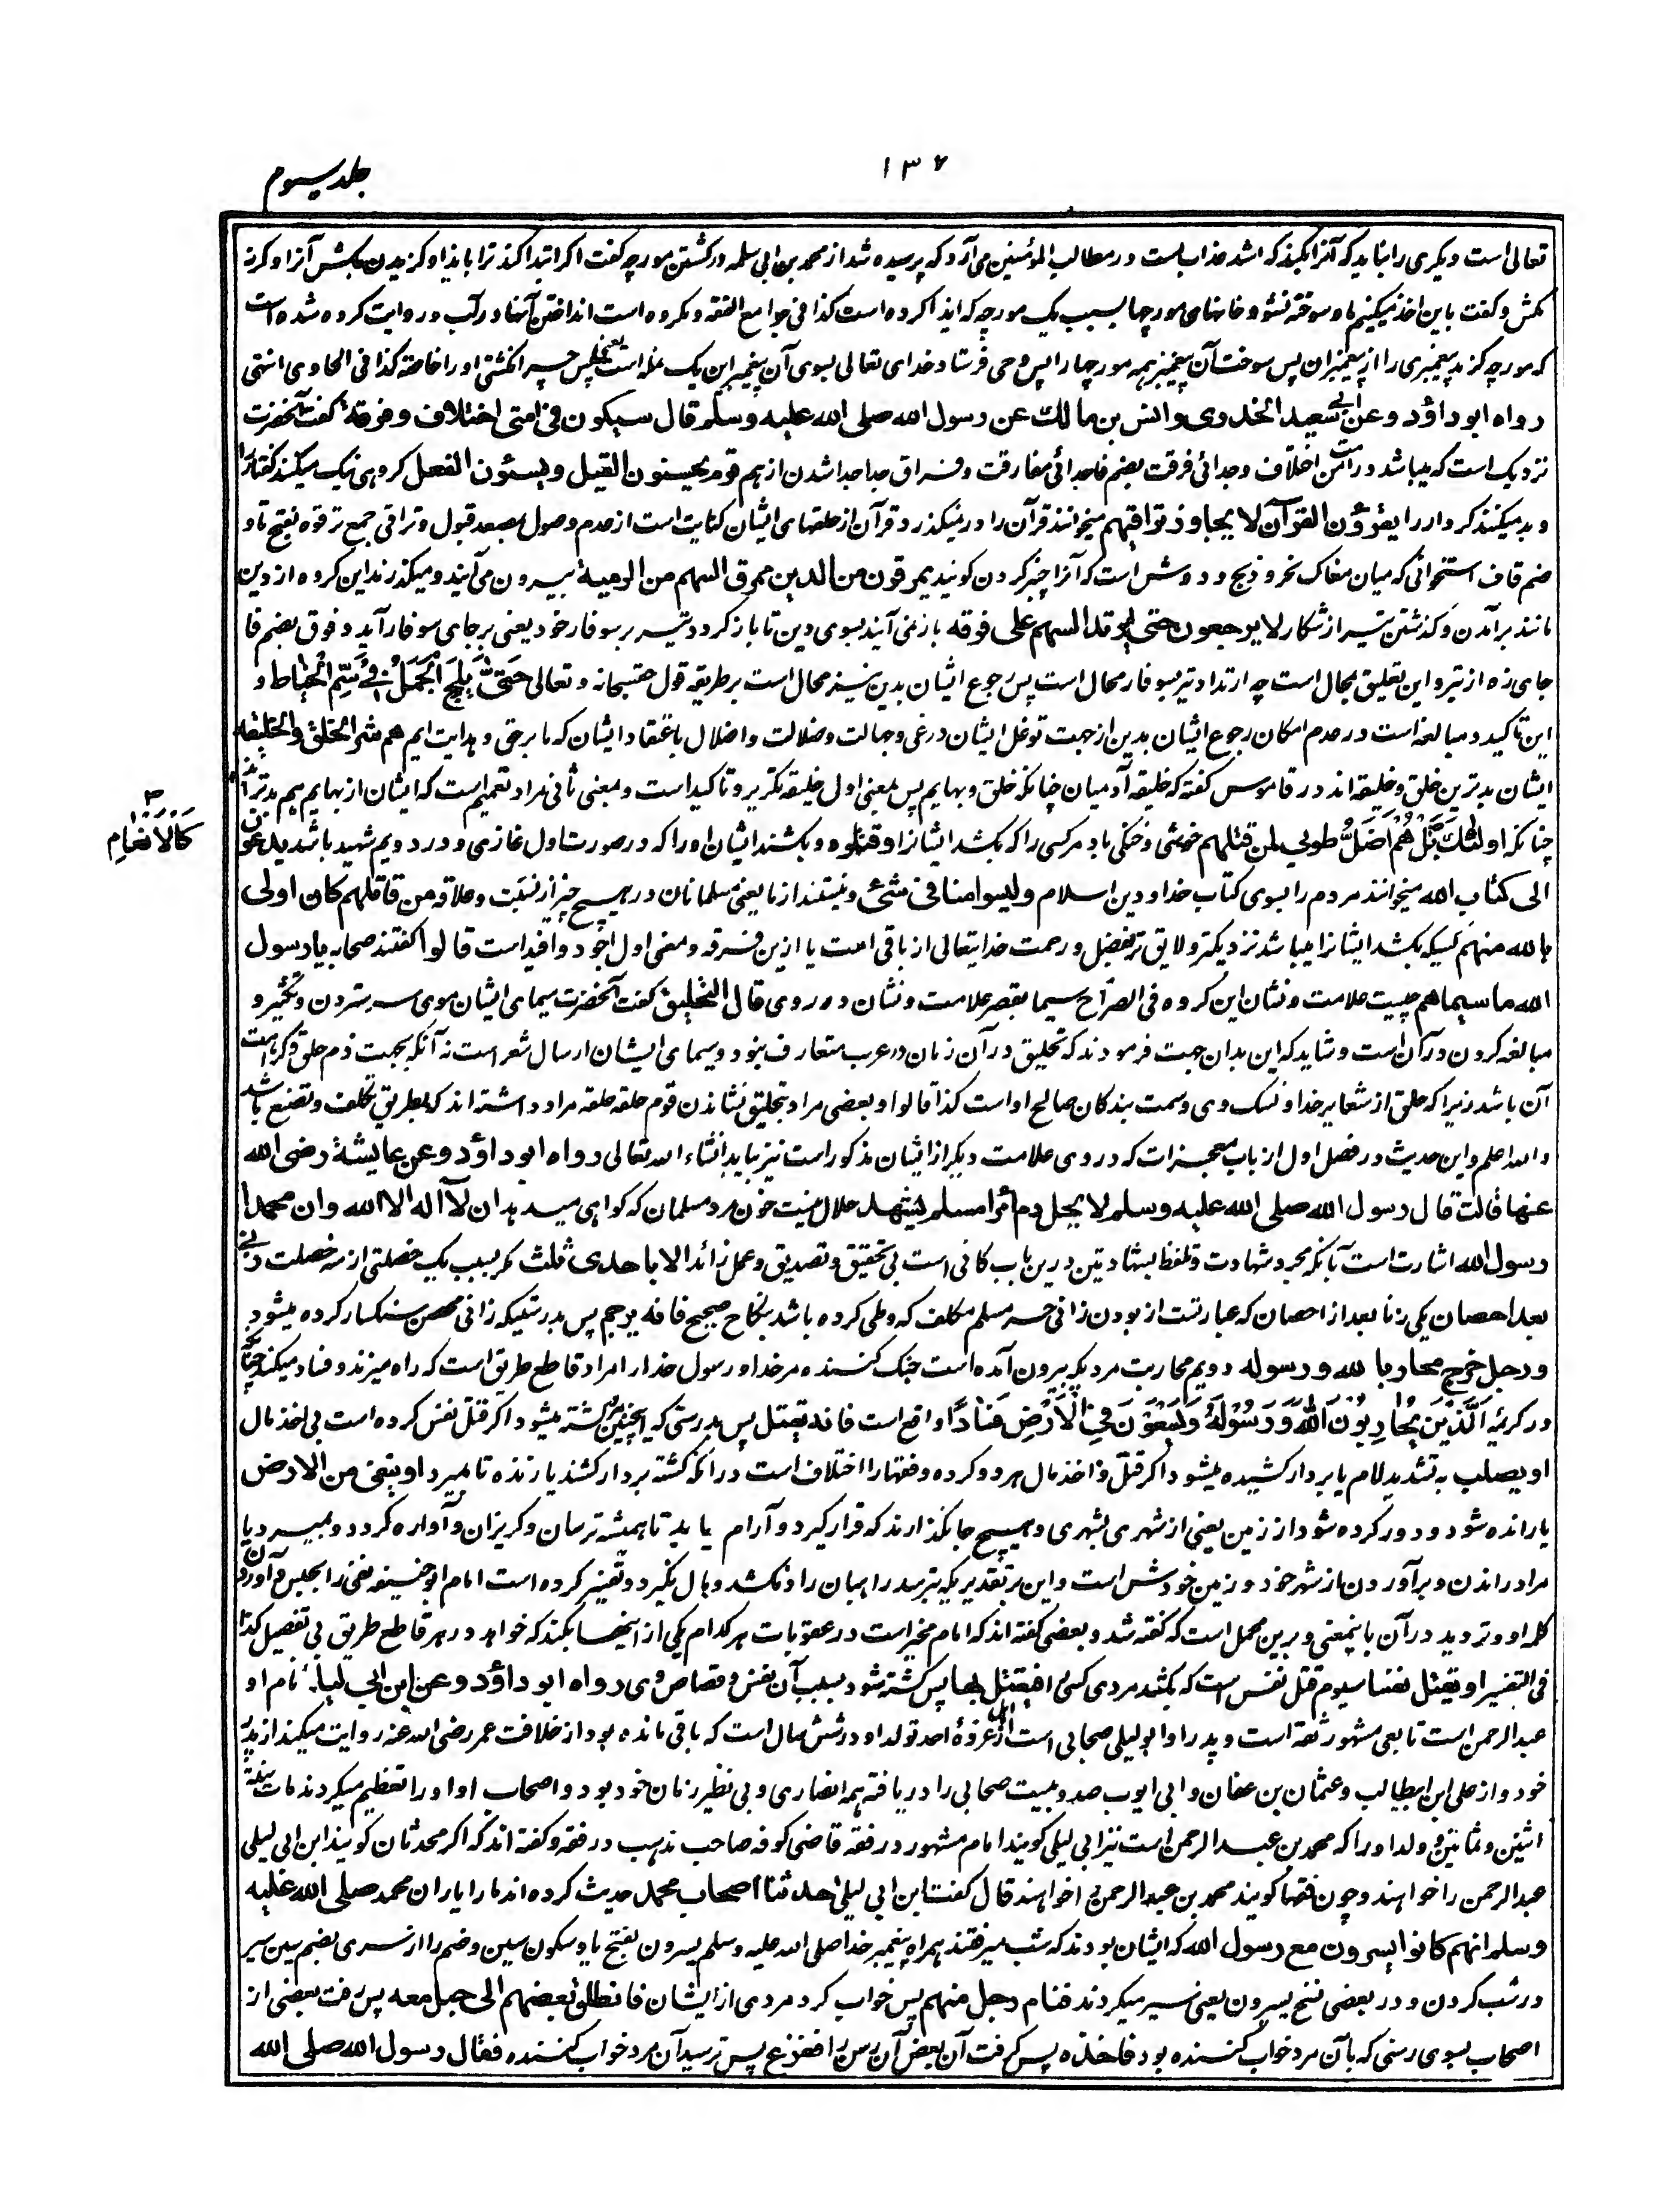 ۱۳۷
جلد سیوم
تعالی است دیگری را نباید که آنرا بکند که اشد عذاب است و در مطالب المؤمنین می آرد که پرسیده شد از محمد بن ابی سلمه در کشتن مورچه گفت اگر ابتدا کند ترا بایذا و گزیدن بکش آنرا و گرنه
مکش و گفت باین اخذ میکنیم ما و سوخته نشود خانهای مورچها بسبب یک مورچه که ایذا کرده است کذا فی جوامع الفقه و مکروه است انداختن آنها در آب و روایت کرده شده است
که مورچه گزید پیغمبری را از پیغمبران پس سوخت آن پیغمبر همه مورچها را پس وحی فرستاد خدای تعالی بسوی آن پیغمبر این یک نمله است یعنی پس چرا نکشتی او را خاصة کذا فی الحاوی انتهی
رواه ابو داؤد وعن ابی سعید الخدری وانس بن مالك عن رسول الله صلی الله علیه وسلم قال سیکون فی امتی اختلاف وفرقة گفت آنحضرت
نزدیک است که میباشد در امت من اختلاف و جدائی فرقت بضم فا جدائی مفارقت و فراق جدا جدا شدن از هم قوم یحسنون القیل ویسیئون الفعل گروهی نیک میکنند گفتار را
و بد میکنند کردار را یقرؤن القرآن لا یجاوز تراقیهم میخوانند قرآن را در نمیگذرد قرآن از حلقهای ایشان کنایت است از عدم وصول بصعد قبول و تراقی جمع ترقوه بفتح تا و
ضم قاف استخوانی که میان مغاک نحر و ذبح و دوش است که آنرا چنبر گردن گویند یمرقون من الدین مروق السهم من الرمیة بیرون می آیند و میگذرند این گروه از دین
مانند برآمدن و گذشتن تیر از شکار لا یرجعون حتی یرتد السهم علی فوقه باز نمی آیند بسوی دین تا باز گردد تیر بر سوفار خود یعنی بر جای سوفار آید و فوق بضم فا
جای زه از تیر و این تعلیق بمحال است چه ارتداد تیر بسوفار محال است پس رجوع ایشان بدین نیز محال است بر طریقه قول حق سبحانه و تعالی حَتّٰی یَلِجَ الْجَمَلُ فِیْ سَمِّ الْخِیَاطِ و
این تاکید و مبالغه است در عدم امکان رجوع ایشان بدین از جهت توغل ایشان در غی و جهالت و ضلالت و اضلال با عتقاد ایشان که ما بر حق و هدایت ایم هم شر الخلق والخلیقة
ایشان بدترین خلق و خلیقه اند در قاموس گفته که خلیقه آدمیان چنانکه خلق و بهایم پس بمعنی اول خلیقه تکریر و تاکید است و بمعنی ثانی مراد تعمیم است که ایشان از بهایم هم بدتراند
چنانکه اولئك كالانعام بَلْ هُمْ اَضَلُّ طوبی لمن قتلهم خوشی و خنکی باد مر کسی را که بکشد ایشانرا وقتلوه و بکشند ایشان او را که در صورت اول غازی و در دویم شهید باشد یدعون
الی کتاب الله میخوانند مردم را بسوی کتاب خدا و دین اسلام ولیسوا منا فی شئ و نیستند از ما یعنی مسلمانان در هیچ چیز از نسبت و علاقه من قاتلهم کان اولی
بالله منهم کسیکه بکشد ایشانرا میباشد نزدیکتر و لایق تر بفضل و رحمت خدایتعالی از باقی امت یا ازین فرقه و معنی اول اجود و افید است قالوا گفتند صحابه یا رسول
الله ما سیماهم چیست علامت و نشان این گروه فی الصراح سیما بقصر علامت و نشان در روی قال التحلیق گفت آنحضرت سیمای ایشان موی سر ستردن و تکثیر و
مبالغه کردن در آن است و شاید که این بدان جهت فرمودند که تحلیق در آن زمان در عرب متعارف نبود و سیمای ایشان ارسال شعر است نه آنکه بجهت ذم حلق و کراهت
آن باشد زیرا که حلق از شعایر خدا و نسک وی و سمت بندگان صالح او است کذا قالوا و بعضی مراد بتحلیق نشاندن قوم حلقه حلقه مراد داشته اند که بطریق تکلف و تصنع باشد
والله اعلم و این حدیث در فصل اول از باب معجزات که در وی علامت دیگر از ایشان مذکور است نیز بیاید انشاء الله تعالی رواه ابو داؤد وعن عایشة رضی الله
عنها قالت قال رسول الله صلی الله علیه وسلم لا یحل دم امرأ مسلم یشهد حلال نیست خون مرد مسلمان که گواهی میدهد ان لآ اله الا الله وان محمدا
رسول الله اشارت است بآنکه مجرد شهادت و تلفظ بشهادتین درین باب کافی است بی تحقیق و تصدیق و عمل زائد الا باحدی ثلث مگر بسبب یک خصلتی از سه خصلت زنی
بعد احصان یکی زنا بعد از احصان که عبارتست از بودن زانی حر مسلم مکلف که وطی کرده باشد بنکاح صحیح فانه یرجم پس بدرستیکه زانی محصن سنگسار کرده میشود
ورجل خرج محاربا لله ورسوله دویم محاربت مردیکه بیرون آمده است جنگ کننده مر خدا و رسول خدا را مراد قاطع طریق است که راه میزند و فساد میکند چنانچه
در کریمه اَلَّذِیْنَ یُحَارِبُوْنَ اللّٰهَ وَرَسُوْلَهٗ وَیَسْعَوْنَ فِی الْاَرْضِ فَسَادًا واقع است فانه یقتل پس بدرستی که اینچنین کس کشته میشود اگر قتل نفس کرده است بی اخذ مال
او یصلب به تشدید لام یا بر دار کشیده میشود اگر قتل و اخذ مال هر دو کرده و فقها را اختلاف است در آنکه کشته بردار کشند یا زنده تا بمیرد او ینفی من الارض
یا رانده شود و دور کرده شود از زمین یعنی از شهری بشهری و هیچ جا نگذارند که قرار گیرد و آرام یابد تا همیشه ترسان و گریزان و آواره گردد و بمیرد یا
مراد راندن و برآوردن از شهر خود و زمین خودش است و این بر تقدیریکه بترسد راهبان را و نکشد و مال نگیرد و تفسیر کرده است امام ابو حنیفه نفی را بحبس و آوردن
کلمه او و تردید در آن بانیمعنی و برین محمل است که گفته شد و بعضی گفته اند که امام مخیر است در عقوبات هر کدام یکی از اینها بکند که خواهد در هر قاطع طریق بی تفصیل کذا
فی التفسیر او یقتل نفسا سیوم قتل نفس است که بکشد مردی کسی را فیقتل بها پس کشته شود بسبب آن نفس و قصاص وی رواه ابو داؤد وعن ابن ابی لیلی نام او
عبد الرحمن است تابعی مشهور ثقه است و پدر او ابو لیلی صحابی است از اهل غزوهٔ احد تولد او در شش سال است که باقی مانده بود از خلافت عمر رضی الله عنه روایت میکند از پدر
خود و از علی ابن ابیطالب و عثمان بن عفان و ابی ایوب صد و بیست صحابی را دریافته همه انصاری و بی نظیر زمان خود بود و اصحاب او او را تعظیم میکردند مات سنة
اثنین و ثمانین و ولد او را که محمد بن عبد الرحمن است نیز ابی لیلی گویند امام مشهور در فقه قاضی کوفه صاحب مذهب در فقه و گفته اند که اگر محدثان گویند ابن ابی لیلی
عبد الرحمن را خواهند و چون فقها گویند محمد بن عبد الرحمن را خواهند قال گفت ابن ابی لیلی حدثنا اصحاب محمد حدیث کرده اند ما را یاران محمد صلی الله علیه
وسلم انهم کانوا یسرون مع رسول الله که ایشان بودند که شب میرفتند همراه پیغمبر خدا صلی الله علیه وسلم یسرون بفتح یا و سکون سین و ضم را از سری بضم سین سیر
در شب کردن و در بعضی نسخ یسیرون یعنی سیر میکردند فنام رجل منهم پس خواب کرد مردی از ایشان فانطلق بعضهم الی حبل معه پس رفت بعضی از
اصحاب بسوی رسنی که با آن مرد خواب کننده بود فاخذه پس گرفت آن بعض آن رسن را ففزع پس ترسید آن مرد خواب کننده فقال رسول الله صلی الله
كالانعام